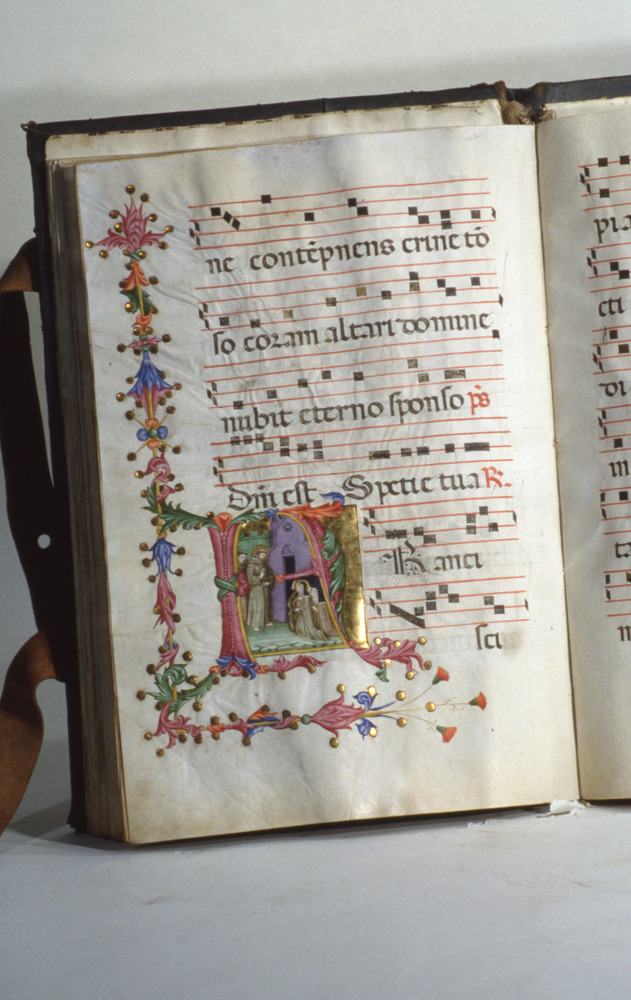 ne contēpnens crine tō
so coram altari domine
nubit eterno sponso ps̄
Dīn est Specie tua R.
Franci
sci
pia
cti
di
m
ta